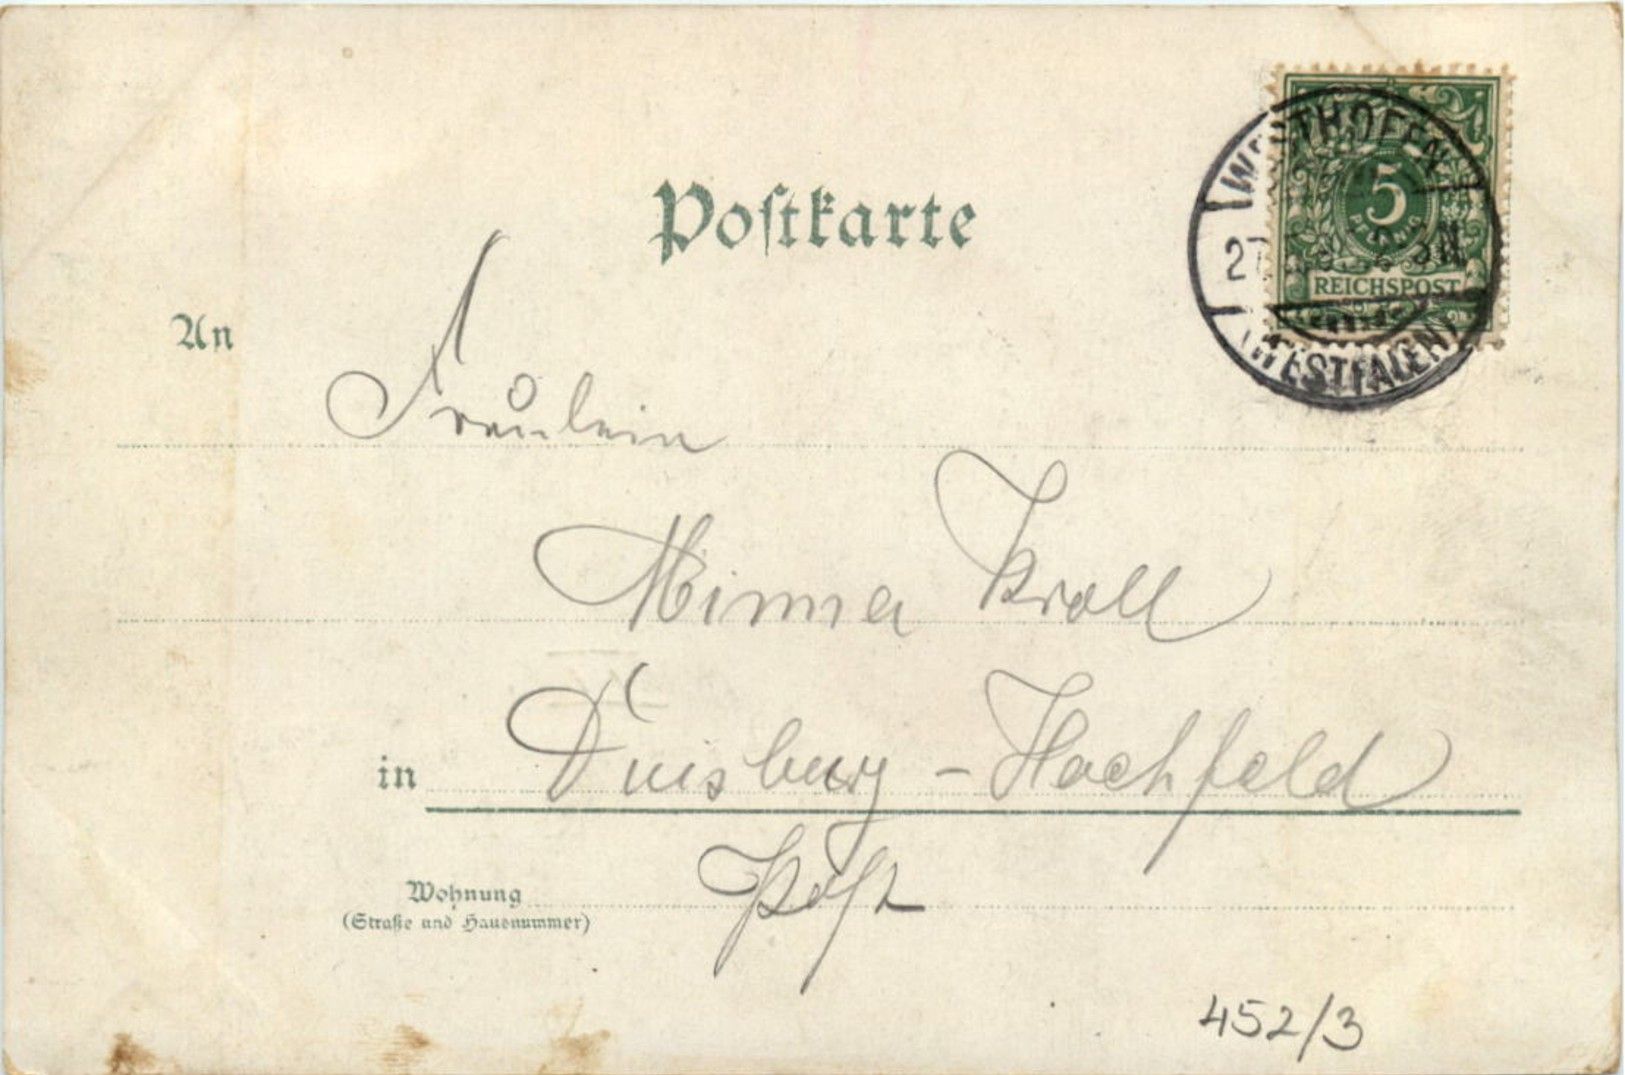 Postkarte
WESTHOFEN
5
PFENNIG
REICHSPOST
(WESTFALEN)
An
Fräulein
Minna Kroll
in Duisburg - Hochfeld
Wohnung
(Straße und Hausnummer)
Post
452/3